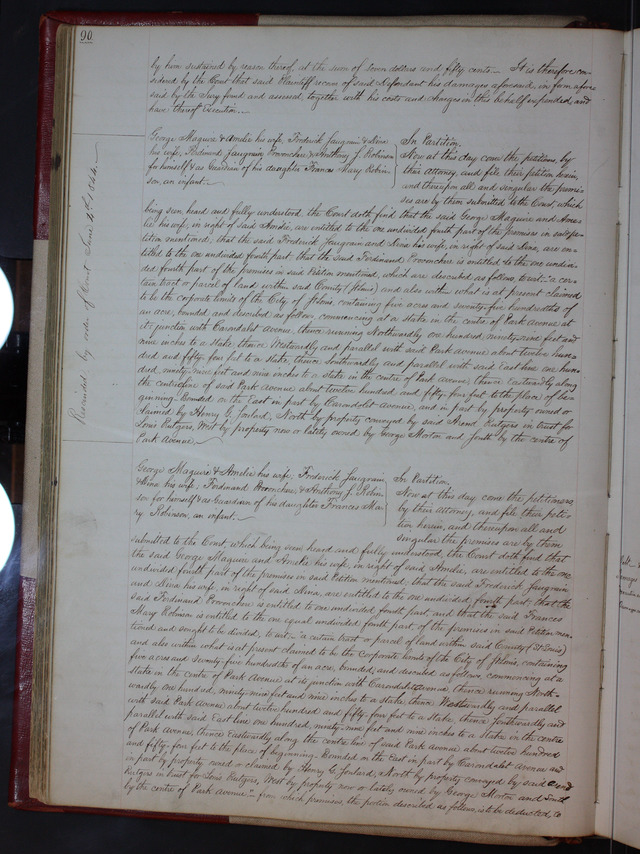 90
by him sustained by reason thereof at the sum of seven dollars and fifty cents. It is therefore con-
sidered by the Court that said Plaintiff recover of said Defendant his damages aforesaid, in form afore
said by the Jury found and assessed, together with his costs and charges in this behalf expended, and
have thereof Execution.
George Maguire & Amelie his wife, Frederick Jaugrain & Nina
his wife, Ferdinand Provenchere & Anthony J. Robinson
for himself & as Guardian of his daughter Frances Mary Robin-
son, an infant.
In Partition.
Now at this day come the petitioners, by
their attorney, and file their petition herein,
and thereupon all and singular the premi-
ses are by them submitted to the Court, which
Rescinded by order of Court June 4th 1844.
being seen, heard and fully understood, the Court doth find that the said George Maguire and Ame-
lie his wife, in right of said Amelie, are entitled to the one undivided fourth part of the premises in said pe-
tition mentioned; that the said Frederick Jaugrain and Nina his wife, in right of said Nina, are en-
titled to the one undivided fourth part, that the said Ferdinand Provenchere is entitled to the one undivi-
ded fourth part of the premises in said Petition mentioned, which are described as follows to wit: "a cer-
tain tract or parcel of land within said County (St Louis) and also within what is at present claimed
to be the corporate limits of the City of St Louis containing five acres and seventy-five hundredths of
an acre, bounded and described as follows, commencing at a stake in the centre of Park avenue at
its junction with Carondelet avenue, thence running Northwardly one hundred, ninety-nine feet and
nine inches to a stake, thence Westwardly and parallel with said Park avenue about twelve hun-
dred and fifty-four feet to a stake, thence Southwardly and parallel with said East line one hun-
dred, ninety-nine feet and nine inches to a stake in the centre of Park avenue, thence Eastwardly along
the centre line of said Park avenue about twelve hundred, and fifty-four feet to the place of be-
ginning. Bounded on the East in part by Carondelet avenue, and in part by property owned or
claimed by Henry G. Soulard, North by property conveyed by said Arend Rutgers in trust for
Louis Rutgers, West by property now or lately owned by George Morton and South by the centre of
Park Avenue.
George Maguire & Amelie his wife, Frederick Jaugrain
& Nina his wife, Ferdinand Provenchere, & Anthony J. Robin
son for himself & as Guardian of his daughter Frances Ma-
ry Robinson, an infant.
In Partition,
Now at this day come the petitioners
by their attorney, and file their peti-
tion herein, and thereupon all and
singular the premises are by them
submitted to the Court, which being seen heard and fully understood, the Court doth find that
the said George Maguire and Amelie his wife, in right of said Amelie, are entitled to the one
undivided fourth part of the premises in said Petition mentioned; that the said Frederick Jaugrain
and Nina his wife, in right of said Nina, are entitled to the one undivided fourth part; that the
said Ferdinand Provenchere is entitled to one undivided fourth part and that the said Frances
Mary Robinson is entitled to the one equal undivided fourth part of the premises in said Petition men
tioned and sought to be divided, to wit "a certain tract or parcel of land within said County (St Louis)
and also within what is at present claimed to be the corporate limits of the City of St Louis, containing
five acres and seventy-five hundredths of an acre, bounded and described as follows, commencing at a
stake in the centre of Park Avenue at its junction with Carondelet avenue, thence running North-
wardly one hundred, ninety-nine feet and nine inches to a stake, thence Westwardly and parallel
with said Park Avenue about twelve hundred and fifty-four feet to a stake, thence Southwardly and
parallel with said East line one hundred, ninety-nine feet and nine inches to a stake in the centre
of Park avenue, thence Eastwardly along the centre line of said Park avenue about twelve hundred
and fifty-four feet to the place of beginning. Bounded on the East in part by Carondelet avenue and
in part by property owned or claimed by Henry G. Soulard, North by property conveyed by said Arend
Rutgers in trust for Louis Rutgers, West by property now or lately owned by George Morton and South
by the centre of Park avenue." from which premises the portion described as follows, is to be deducted, to